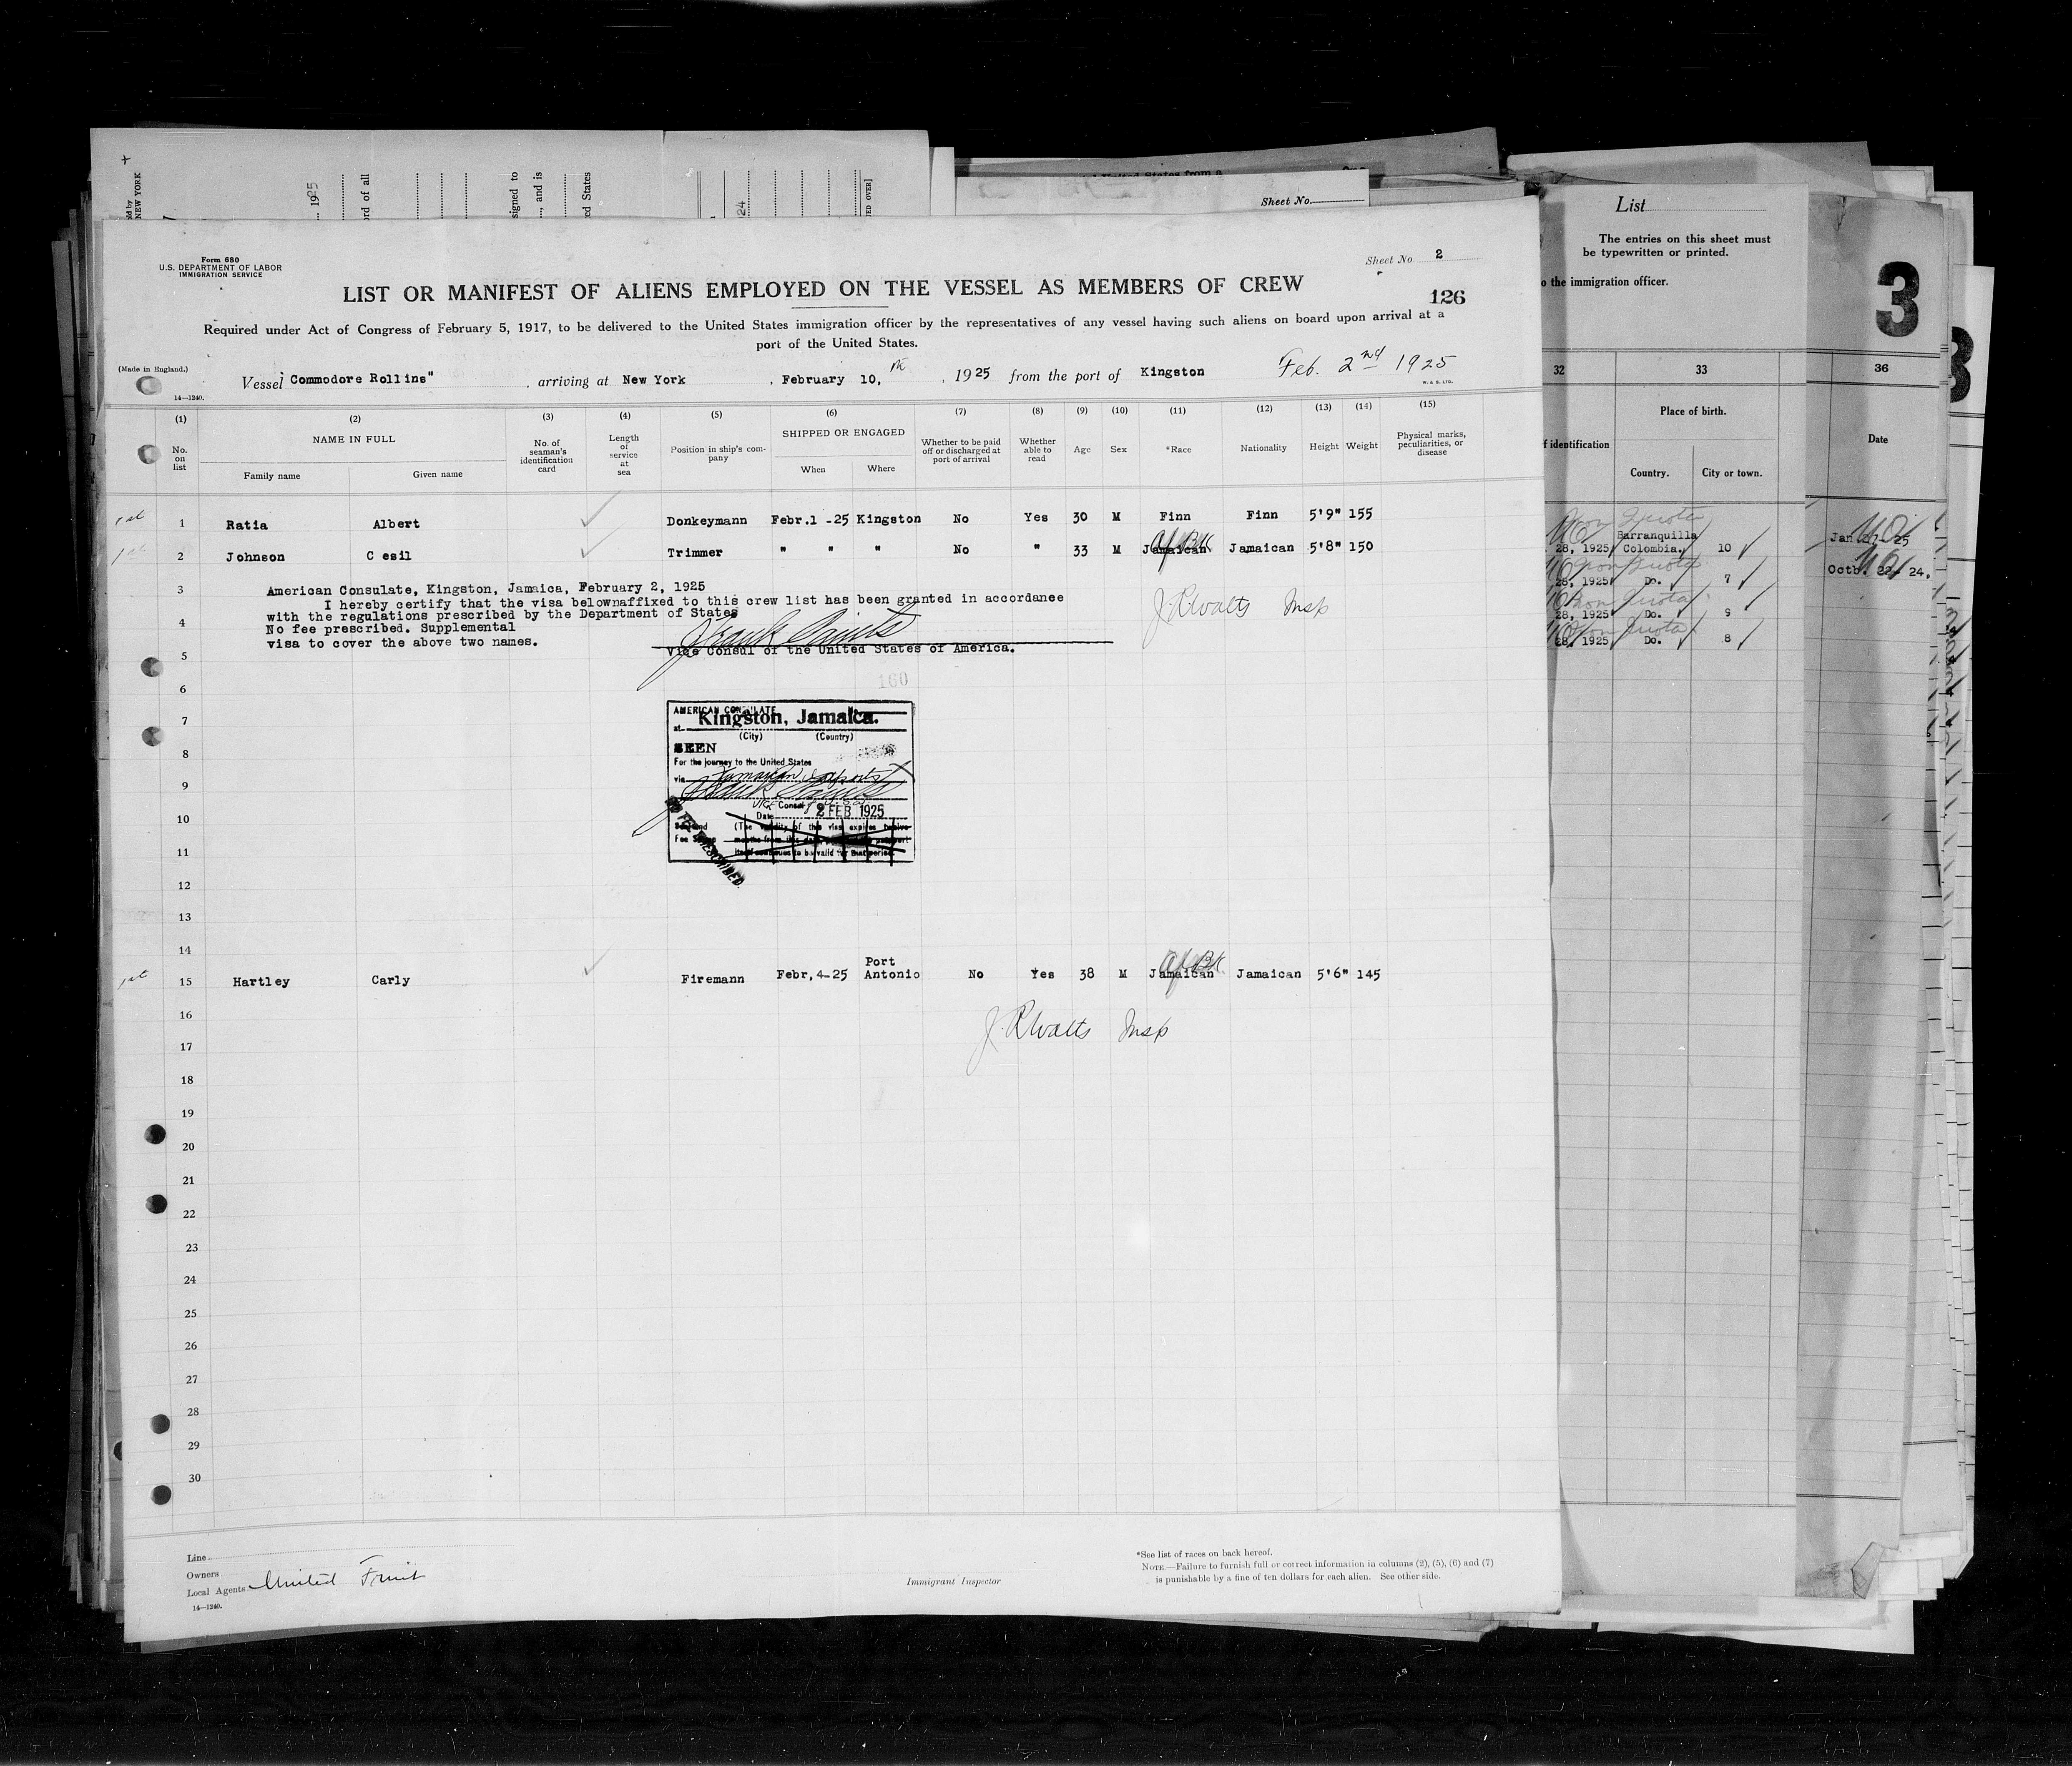 +
NEW YORK
1925
ord of all
signed to
, and is
ed States
24
ED OVER]
Sheet No.
List
The entries on this sheet must
be typewritten or printed.
o the immigration officer.
3
Form 680
U.S. DEPARTMENT OF LABOR
IMMIGRATION SERVICE
Sheet No 2
LIST OR MANIFEST OF ALIENS EMPLOYED ON THE VESSEL AS MEMBERS OF CREW
126
Required under Act of Congress of February 5, 1917, to be delivered to the United States immigration officer by the representatives of any vessel having such aliens on board upon arrival at a
port of the United States.
(Made in England.)
Vessel Commodore Rollins" , arriving at New York , February 10, th , 1925 from the port of Kingston Feb. 2nd 1925
14—1240.
W. & S. LTD.
(1) (2) (3) (4) (5) (6) (7) (8) (9) (10) (11) (12) (13) (14) (15)
No. on list
NAME IN FULL
Family name Given name
No. of seaman's identification card
Length of service at sea
Position in ship's company
SHIPPED OR ENGAGED
When Where
Whether to be paid off or discharged at port of arrival
Whether able to read
Age
Sex
*Race
Nationality
Height
Weight
Physical marks, peculiarities, or disease
1st 1 Ratia Albert Donkeymann Febr.1 -25 Kingston No Yes 30 M Finn Finn 5'9" 155
1st 2 Johnson C esil Trimmer " " " No " 33 M Jamaican Af Blk Jamaican 5'8" 150
3 American Consulate, Kingston, Jamaica, February 2, 1925
I hereby certify that the visa belownaffixed to this crew list has been granted in accordance
with the regulations prescribed by the Department of States
4 No fee prescribed. Supplemental
visa to cover the above two names.
J. R. Watts Insp
5 Vice Consul of the United States of America.
160
6
7
8
9
10
11
12
13
14
AMERICAN CONSULATE
at Kingston, Jamaica.
(City) (Country)
SEEN
For the journey to the United States
via
Vice Consul
Date 2 FEB 1925
(The validity of this visa expires twelve
NO FEE PRESCRIBED.
1st 15 Hartley Carly Firemann Febr,4-25 Port Antonio No Yes 38 M Jamaican Af Blk Jamaican 5'6" 145
16
J. R. Watts Insp
17
18
19
20
21
22
23
24
25
26
27
28
29
30
Line
Owners
Local Agents United Fruit
14—1240.
Immigrant Inspector
*See list of races on back hereof.
NOTE.—Failure to furnish full or correct information in columns (2), (5), (6) and (7)
is punishable by a fine of ten dollars for each alien. See other side.
32 33 36
Place of birth.
f identification
Country. City or town.
Date
28, 1925 Barranquilla Colombia. 10
28, 1925 Do. 7
28, 1925 Do. 9
28, 1925 Do. 8
Jan 27- 25
Octb. 22, 24.